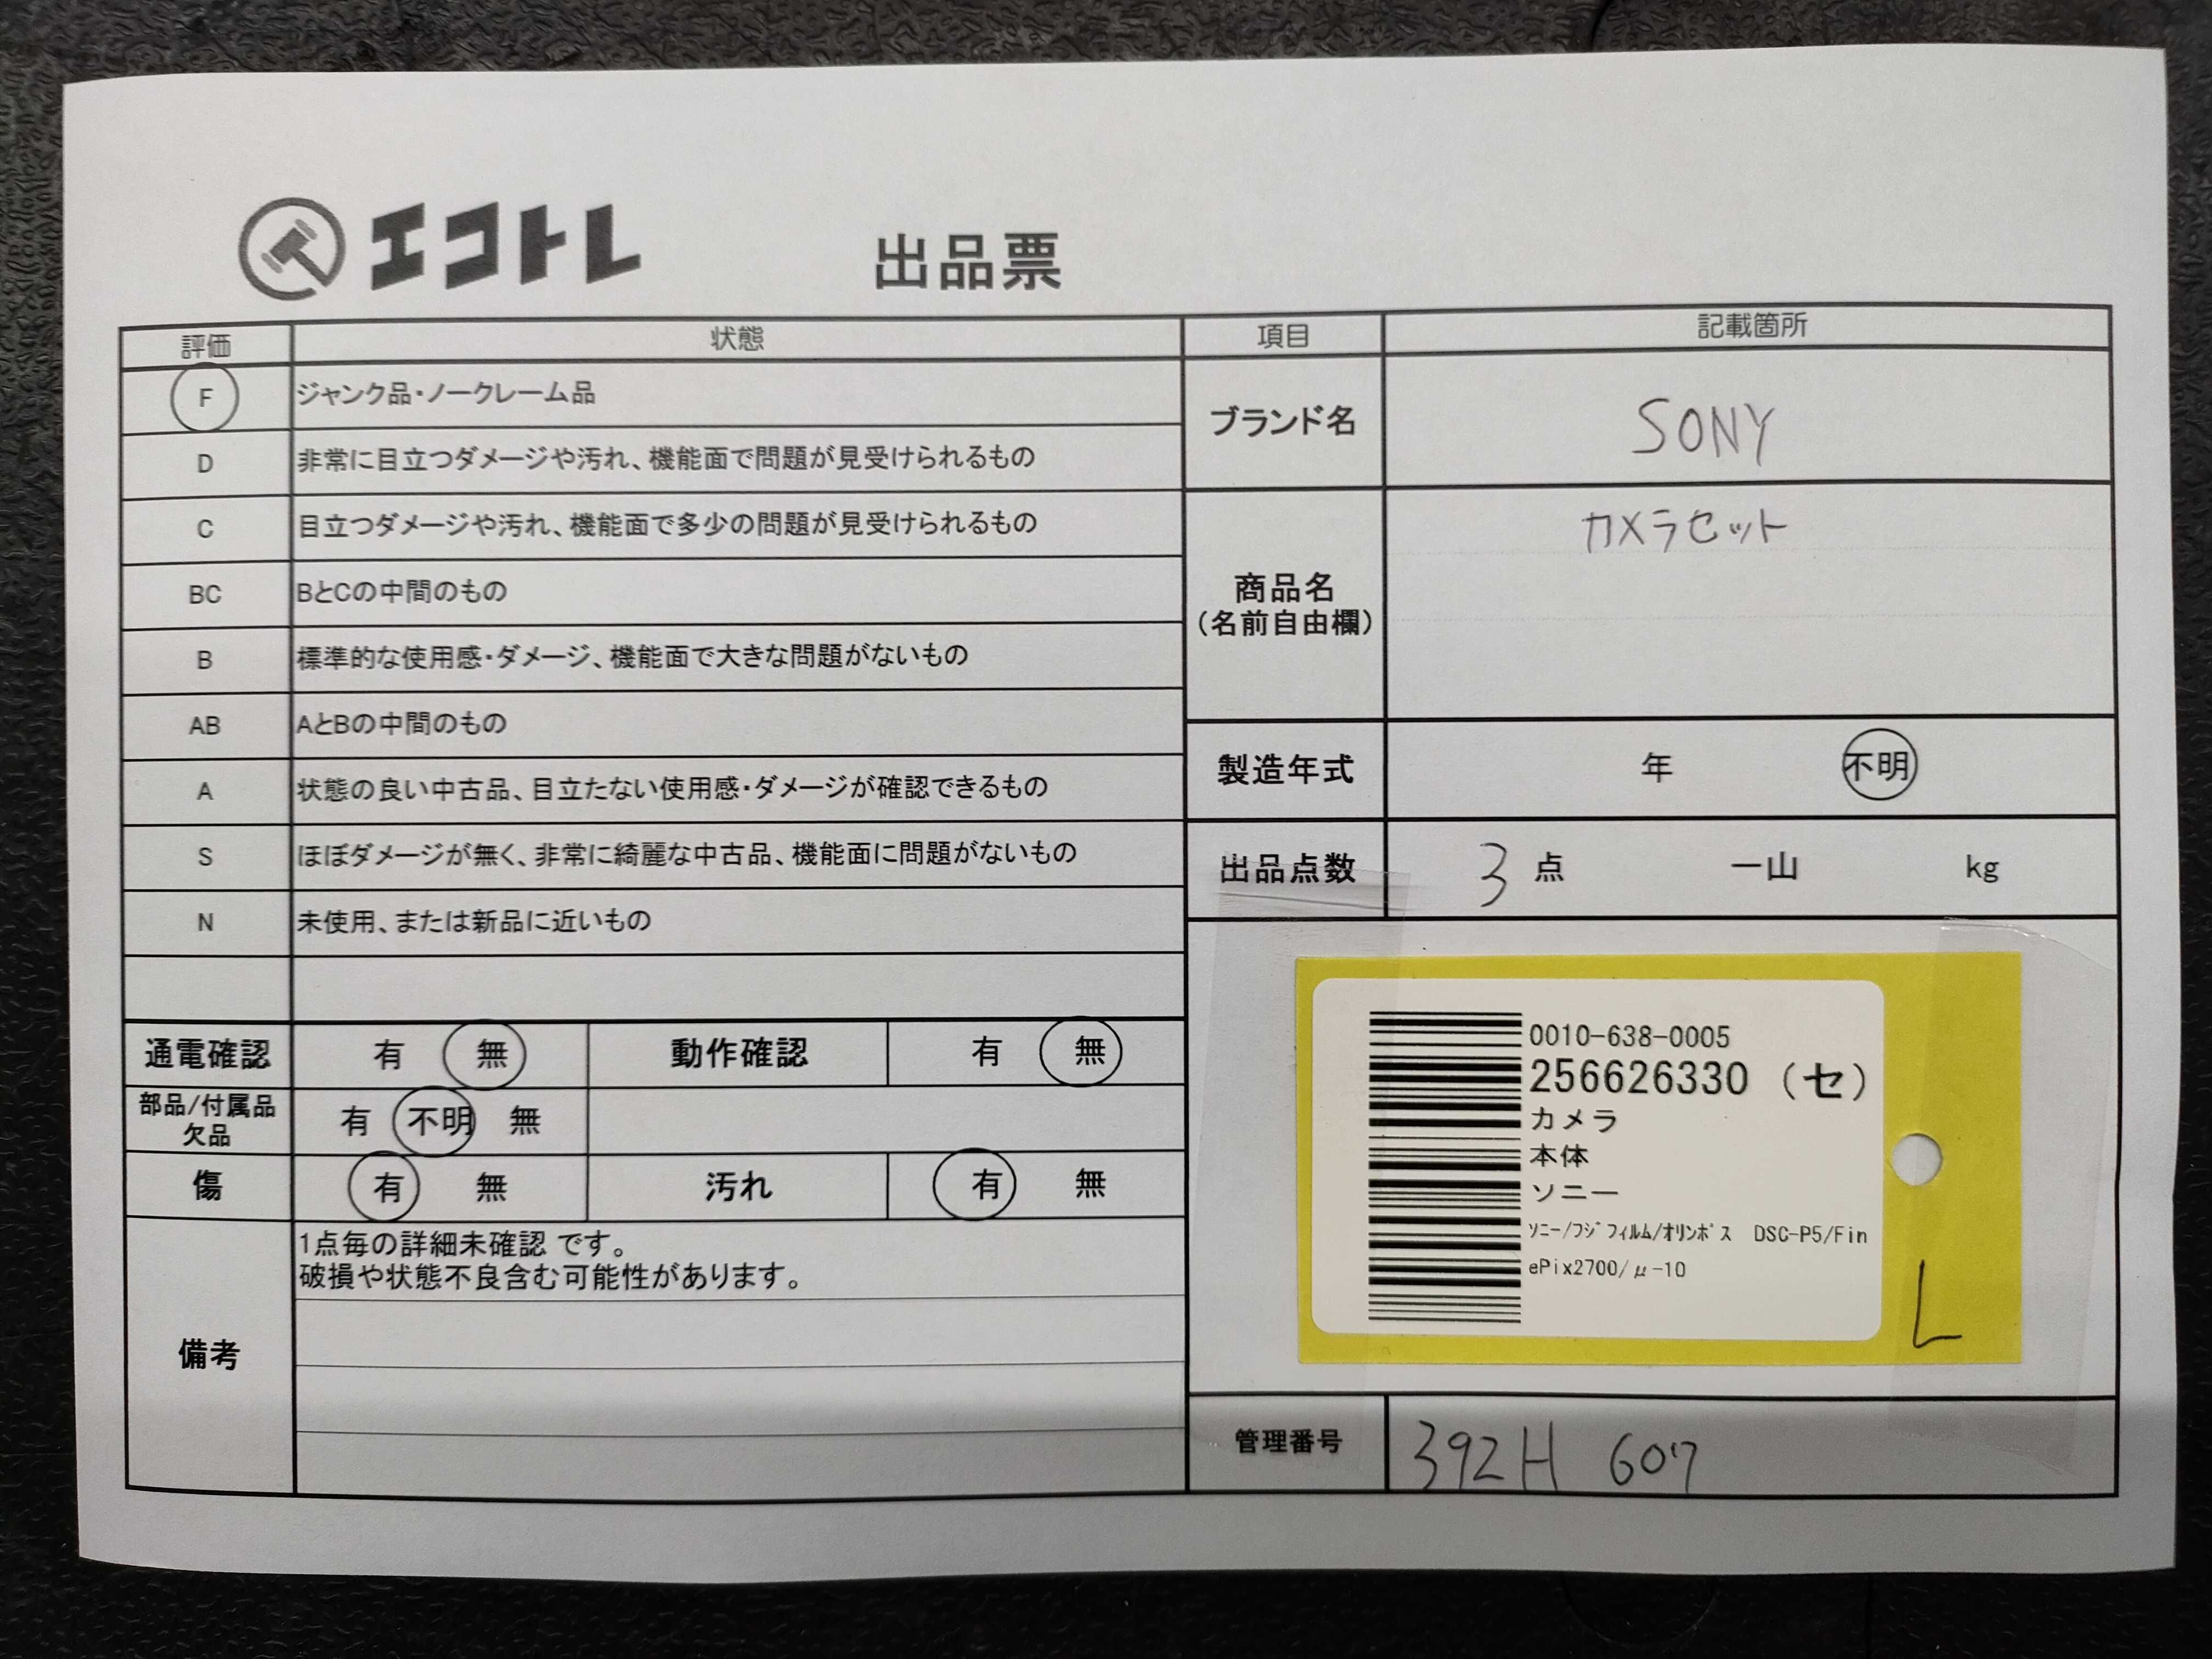 エコトレ 出品票
評価 状態
F ジャンク品・ノークレーム品
D 非常に目立つダメージや汚れ、機能面で問題が見受けられるもの
C 目立つダメージや汚れ、機能面で多少の問題が見受けられるもの
BC BとCの中間のもの
B 標準的な使用感・ダメージ、機能面で大きな問題がないもの
AB AとBの中間のもの
A 状態の良い中古品、目立たない使用感・ダメージが確認できるもの
S ほぼダメージが無く、非常に綺麗な中古品、機能面に問題がないもの
N 未使用、または新品に近いもの
通電確認 有 無 動作確認 有 無
部品/付属品
欠品
有 不明 無
傷 有 無 汚れ 有 無
備考
1点毎の詳細未確認 です。
破損や状態不良含む可能性があります。
項目 記載箇所
ブランド名 SONY
商品名
(名前自由欄)
カメラセット
製造年式 年 不明
出品点数 3 点 一山 kg
0010-638-0005
256626330 (セ)
カメラ
本体
ソニー
ソニー/フジフィルム/オリンポス DSC-P5/Fin
ePix2700/μ-10
L
管理番号 392H 607